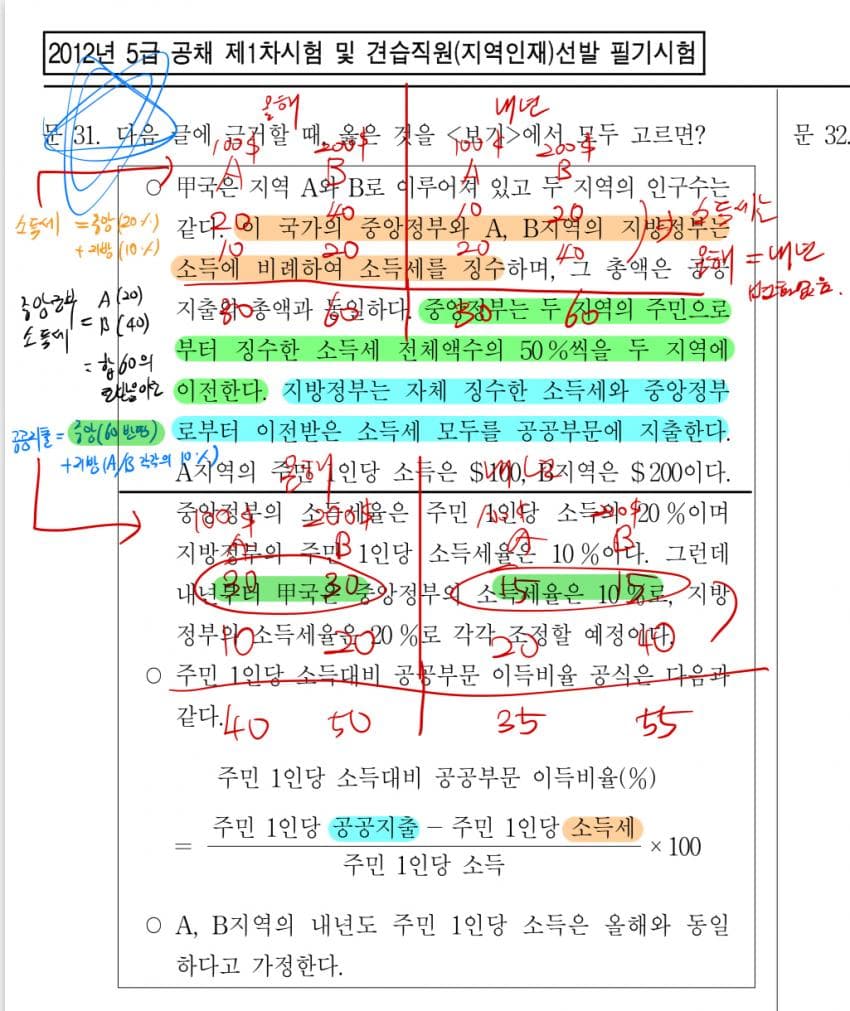 2012년 5급 공채 제1차시험 및 견습직원(지역인재)선발 필기시험
올해 내년
문 31. 다음 글에 근거할 때, 옳은 것을 <보기>에서 모두 고르면?
문 32.
100$ 200$ 100$ 200$
A B A B
○ 甲국은 지역 A와 B로 이루어져 있고 두 지역의 인구수는
같다. 이 국가의 중앙정부와 A, B지역의 지방정부는
소득에 비례하여 소득세를 징수하며, 그 총액은 공공
지출의 총액과 동일하다. 중앙정부는 두 지역의 주민으로
부터 징수한 소득세 전체액수의 50%씩을 두 지역에
이전한다. 지방정부는 자체 징수한 소득세와 중앙정부
로부터 이전받은 소득세 모두를 공공부문에 지출한다.
A지역의 주민 1인당 소득은 $100, B지역은 $200이다.
중앙정부의 소득세율은 주민 1인당 소득의 20%이며
지방정부의 주민 1인당 소득세율은 10%이다. 그런데
내년부터 甲국은 중앙정부의 소득세율은 10%로, 지방
정부의 소득세율은 20%로 각각 조정할 예정이다.
20 40 10 20
10 20 20 40
30 60 30 60
소득세는
올해 = 내년
변화없음.
소득세 = 중앙(20%)
+ 지방(10%)
중앙정부 A(20)
소득세 = B(40)
= 합 60의
공공지출 = 중앙(60 반띵)
+ 지방(A/B 각각의 10%)
올해 내년
100$ 200$ 100$ 200$
A B A B
30 30 15 15
10 20 20 40
40 50 35 55
○ 주민 1인당 소득대비 공공부문 이득비율 공식은 다음과
같다.
주민 1인당 소득대비 공공부문 이득비율(%)
= 주민 1인당 공공지출 - 주민 1인당 소득세
주민 1인당 소득
× 100
○ A, B지역의 내년도 주민 1인당 소득은 올해와 동일
하다고 가정한다.